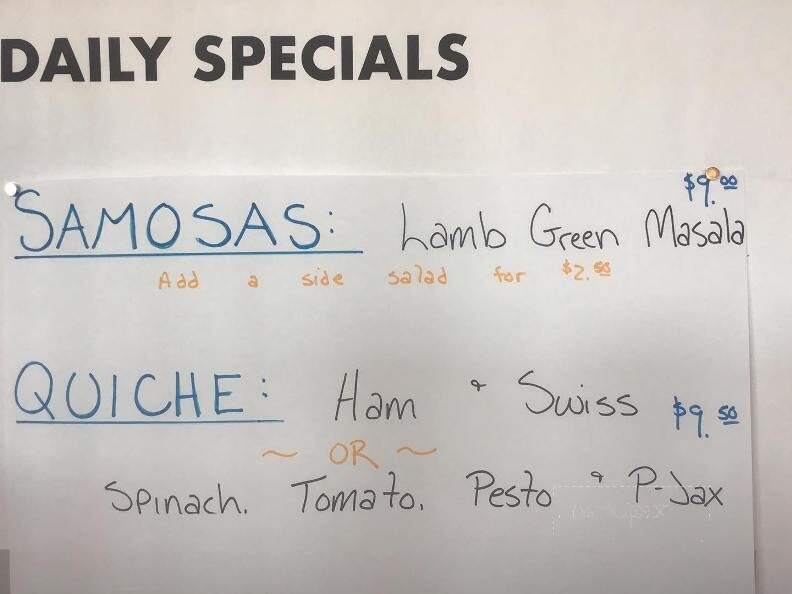 DAILY SPECIALS
$9.00
SAMOSAS: Lamb Green Masala
Add a side salad for $2.50
QUICHE: Ham & Swiss $9.50
~ OR ~
Spinach. Tomato. Pesto & P-Jax